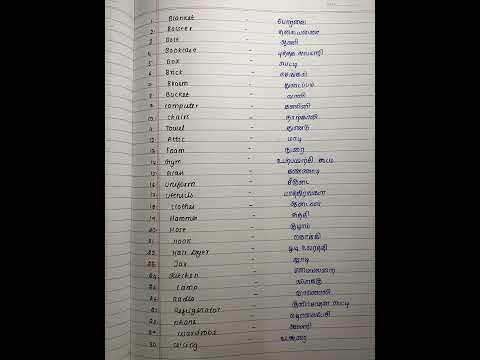 1. Blanket - போர்வை
2. Bolster - தலையணை
3. Bolt - ஆணி
4. Bookcase - புத்தக அலமாரி
5. Box - பெட்டி
6. Brick - செங்கல்
7. Broom - துடைப்பம்
8. Bucket - வாளி
9. Computer - கணினி
10. Chairs - நாற்காலி
11. Towel - துண்டு
12. Attic - மாடி
13. Foam - நுரை
14. Gym - உடற்பயிற்சி கூடம்
15. Glass - கண்ணாடி
16. Uniform - சீருடை
17. Utensils - பாத்திரங்கள்
18. Clothes -
19. Hammer - சுத்தி
20. Hose - குழாய்
21. Hook - கொக்கி
22. Hair dryer - முடி உலர்த்தி
23. Jar - ஜாடி
24. Kitchen - சமையலறை
25. Lamp - விளக்கு
26. Radio - வானொலி
27. Refrigerator - குளிர்சாதன பெட்டி
28. phone - தொலைபேசி
29. wardrobe - அலமாரி
30. ceiling - கூரை